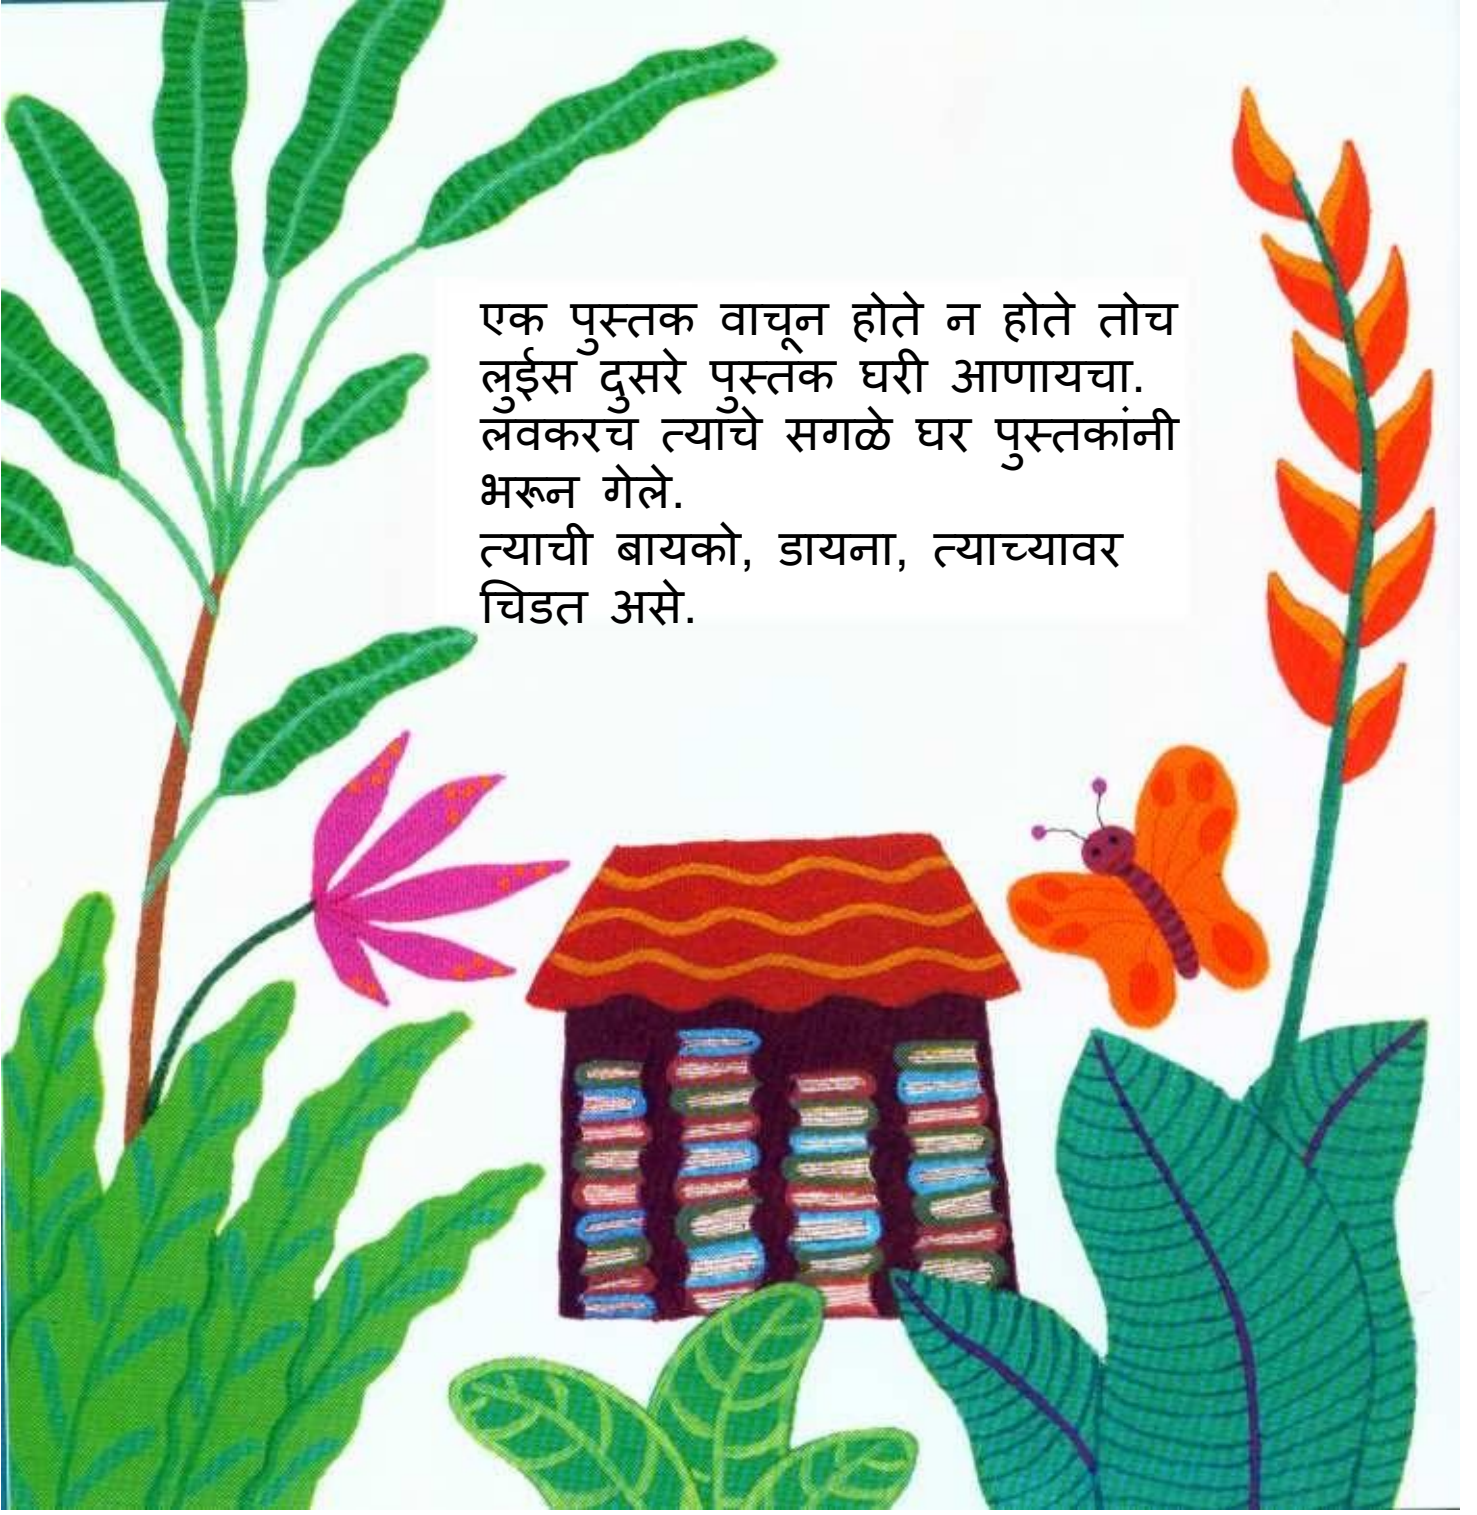 एक पुस्तक वाचून होते न होते तोच
लुईस दुसरे पुस्तक घरी आणायचा.
लवकरच त्याचे सगळे घर पुस्तकांनी
भरून गेले.
त्याची बायको, डायना, त्याच्यावर
चिडत असे.